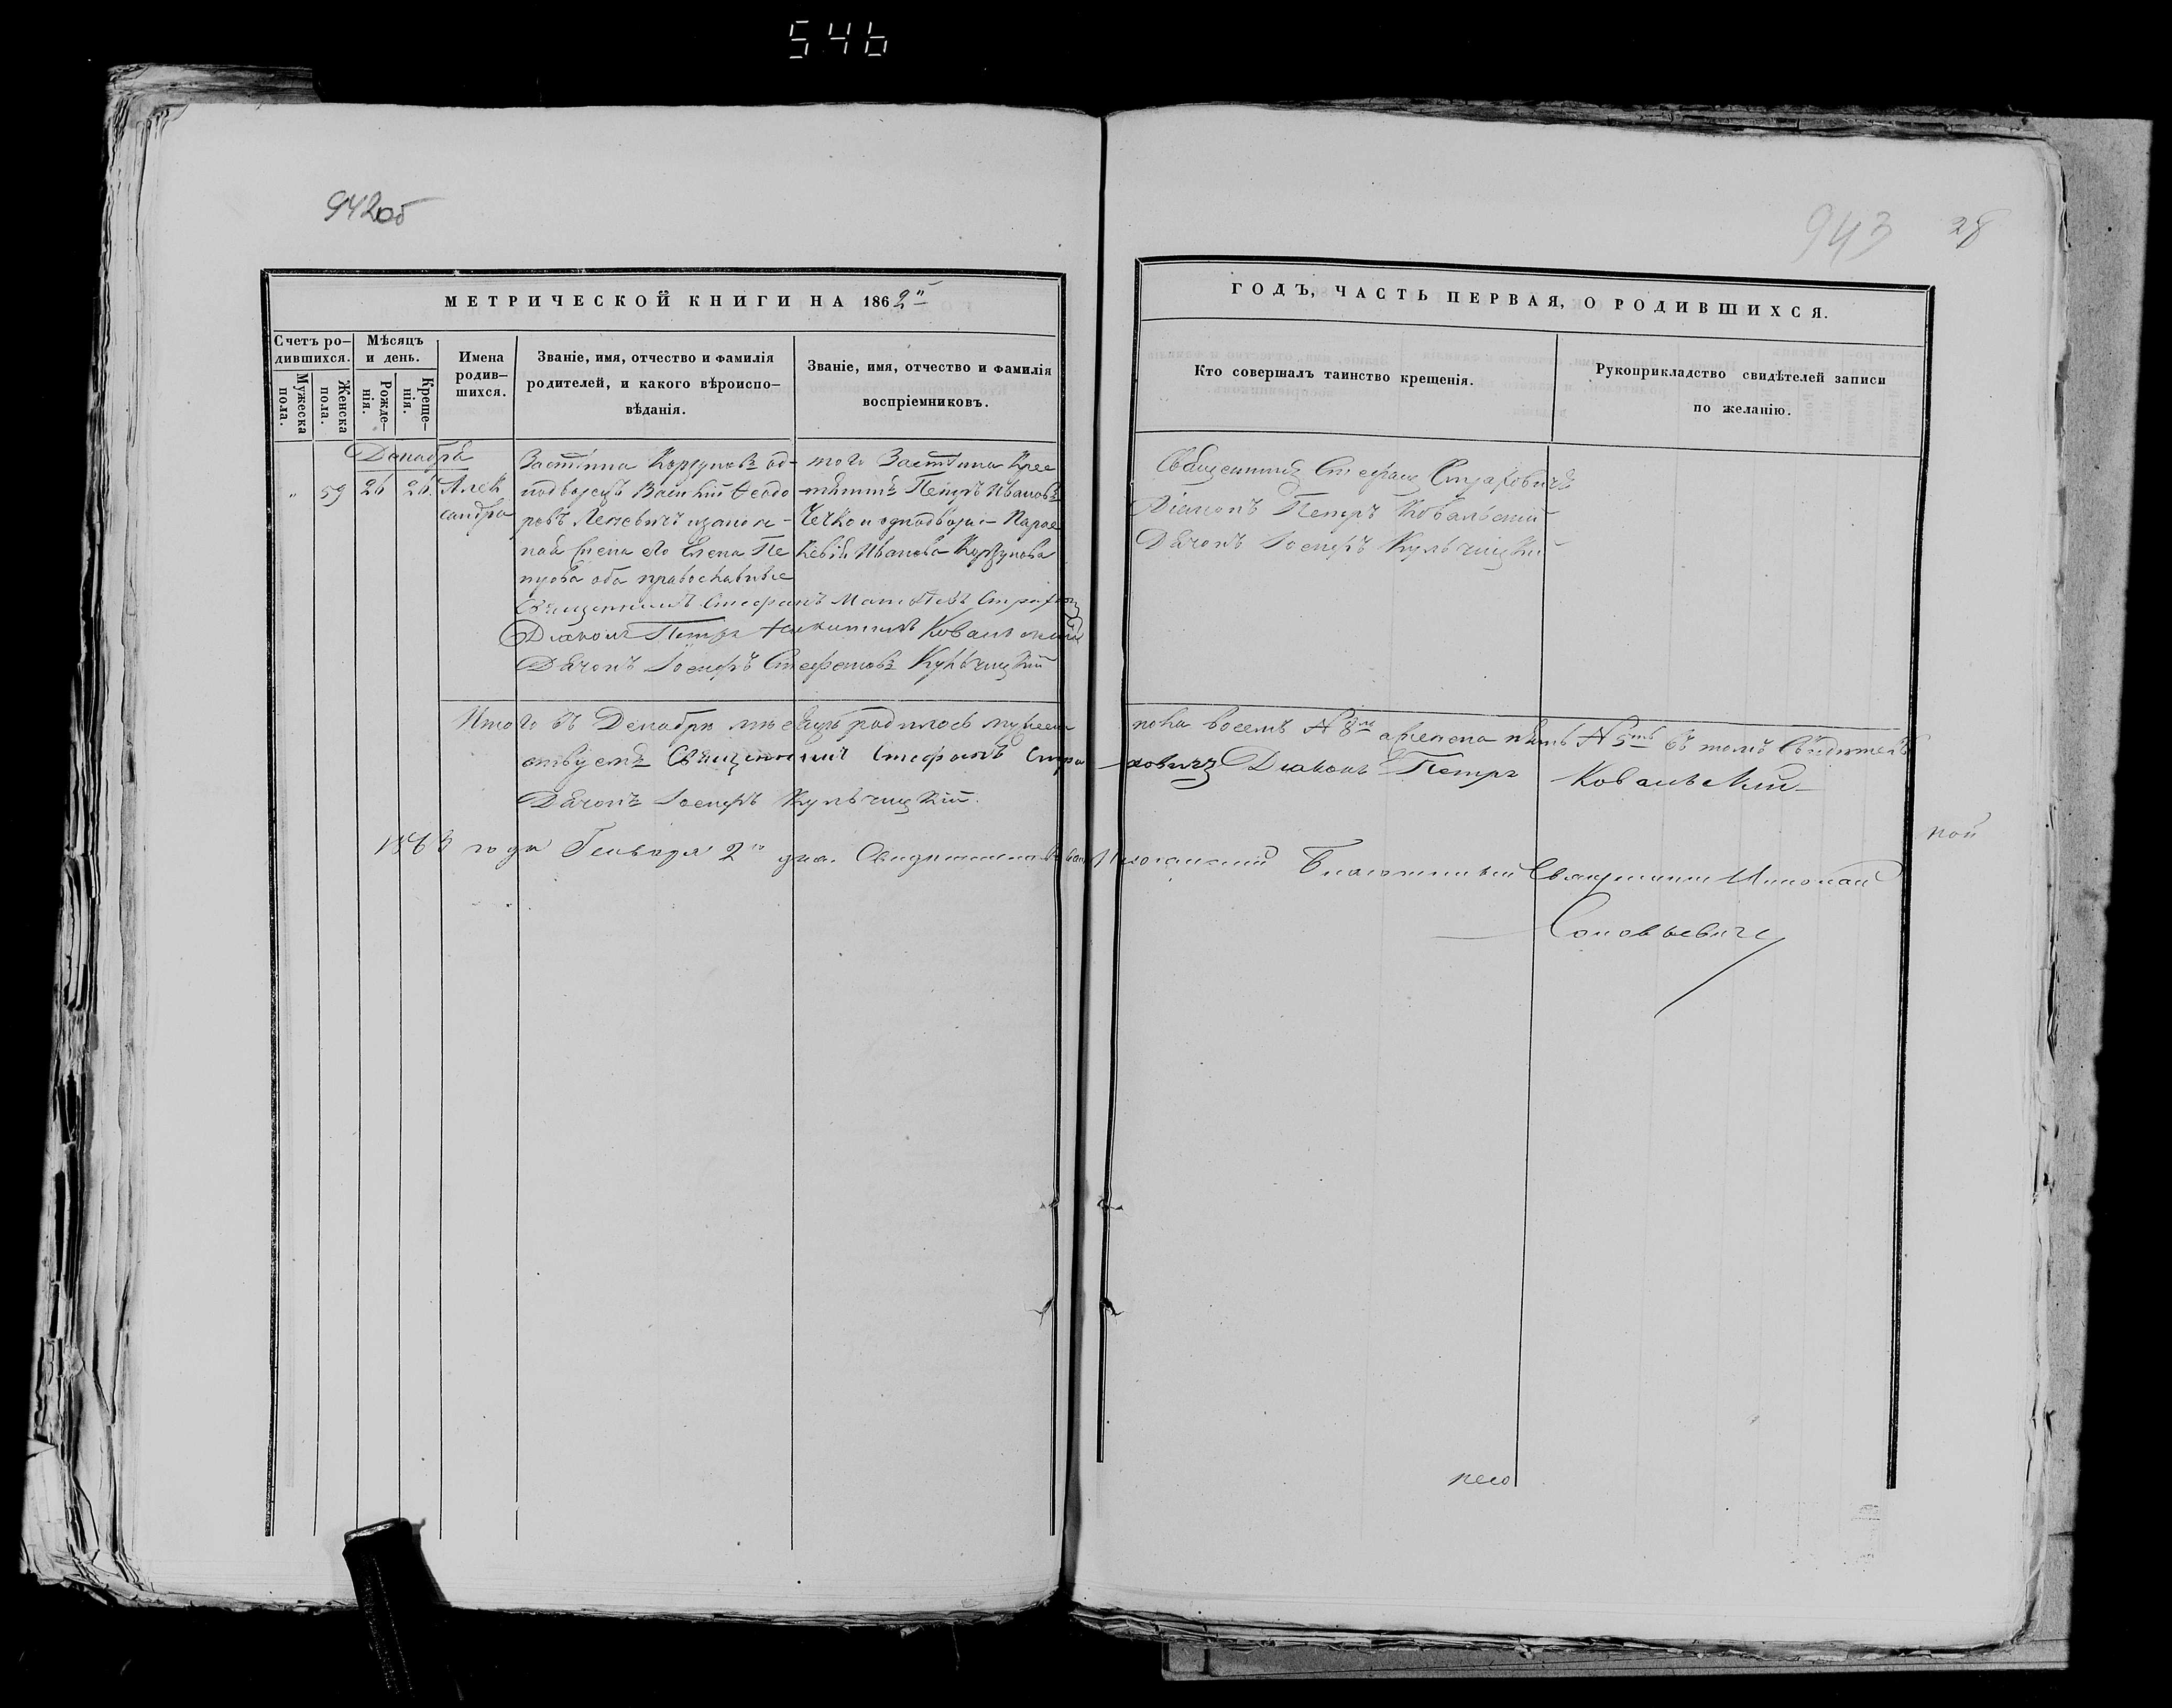 546
942об
943 28
МЕТРИЧЕСКОЙ КНИГИ НА 1862й
ГОДЪ, ЧАСТЬ ПЕРВАЯ, О РОДИВШИХСЯ.
Счетъ ро-
дившихся.
Мужеска
пола.
Женска
пола.
Мѣсяцъ
и день.
Рожде-
нія.
Креще-
нія.
Имена
родив-
шихся.
Званіе, имя, отчество и фамилія
родителей, и какого вѣроиспо-
вѣданія.
Званіе, имя, отчество и фамилія
воспріемниковъ.
Кто совершалъ таинство крещенія.
Рукоприкладство свидѣтелей записи
по желанію.
Декабрь
" 59 26 26
Алек
сандра
Застѣнка од-
нодворецъ Василій Ѳеодо
ровъ законн-
ная жена его Елена Пе
трова оба православные
Священникъ Стефанъ
Діаконъ Петръ Ковальскій
Дьячокъ Іосифъ Стефановъ Кульчицкій
того Застѣнка Крес
тянинъ Петръ Ивановъ
Чечко и однодвор- Парас
кевія Иванова Корзунова
Священникъ Стефанъ Страховичъ
Діаконъ Петръ Ковальскій
Дьячокъ Іосифъ Кульчицкій
Итого въ Декабрѣ мѣсяцѣ родилось мужеска
пола восемь № 8мь а женска пять № 5ть въ томъ Свидѣтель
ствуемъ Священникъ Стефанъ Стра
ховичъ Діаконъ Петръ Ковальскій
Дьячокъ Іосифъ Кульчицкій.
1863 года Генваря 2го дня. Свидѣтельствовалъ
Благочинный Священникъ Николай
Соловьевичъ